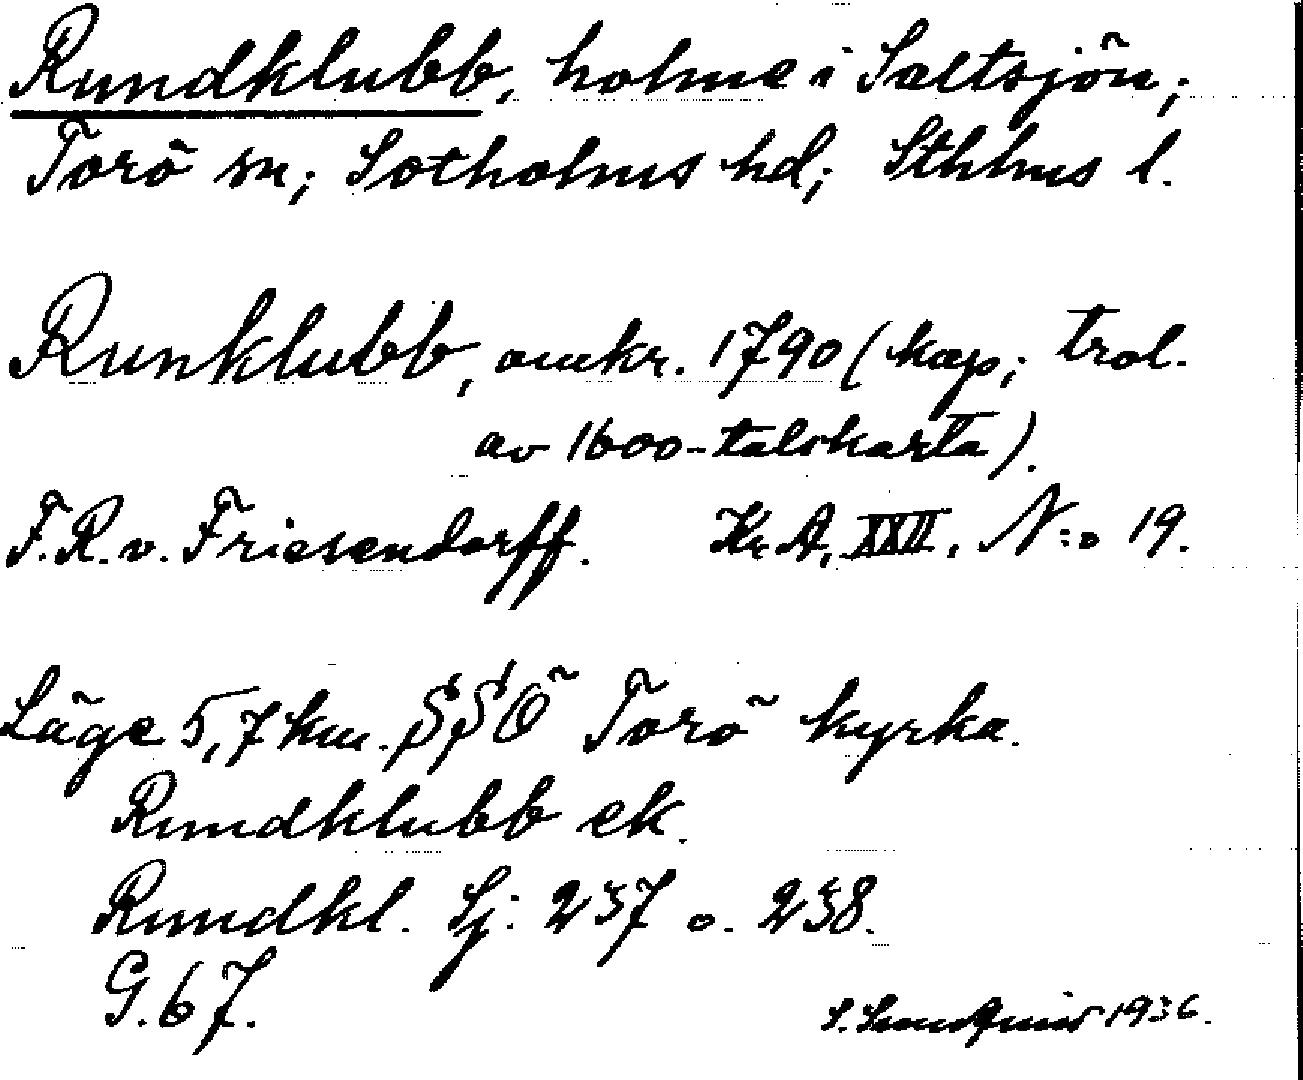 Rundklubb, holme i Saltsjön;
Torö sn; Sotholms hd; Sthlms l.
Runklubb, omkr. 1790 (kop; trol.
av 1600-talskarta).
F.R. v. Friesendorff. Kr. A. XXII. N:o 19.
Läge 5,7 km. SSÖ Torö kyrka.
Rundklubb ek.
Rundkl. Sj: 237 o. 238.
G. 67.
S. 1936.